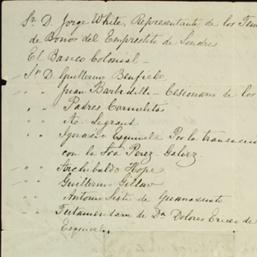 Sr. D. Jorge White, Representante de los Ten
de Bonos del Emprestito de Londres
El Banco Colonial.
Sr. D. Guillermo
" " Juan Barbadillo - Cesionario de los
" Padres Carmelitas
" " No. Legrand
" " Ignacio Esquivel Por la transaccion
con la Sra Perez Galvez
" " Archibaldo Hope
" " Guillermo
" " Antonio de Guanajuato
" " Testamentaria de Da. Dolores de